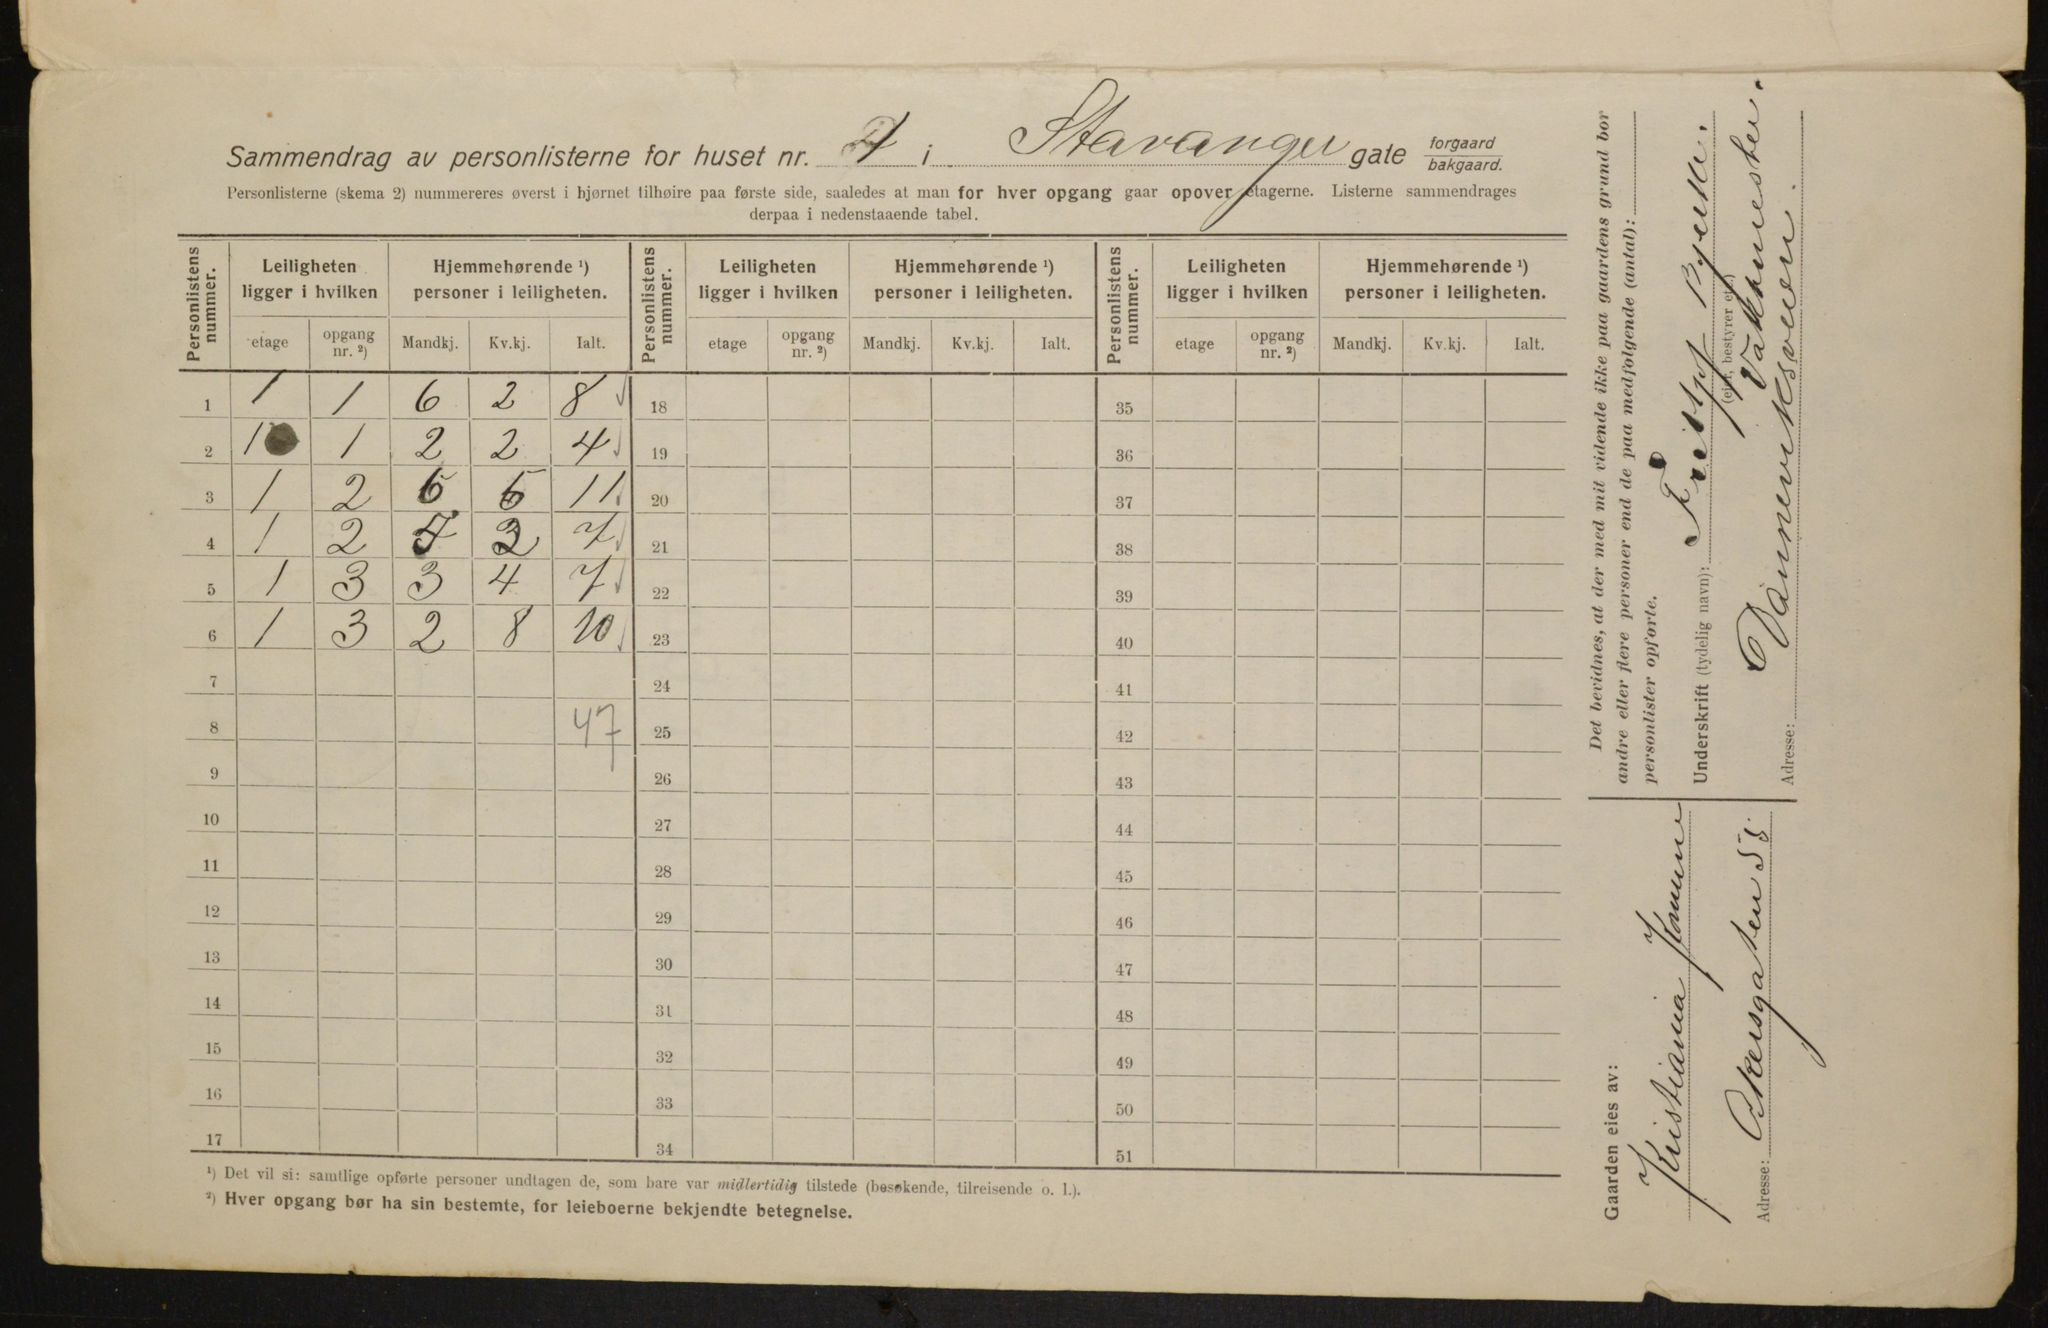 Sammendrag av personlisterne for huset nr. 4 i Stavanger gate forgaard
bakgaard.
Personlisterne (skema 2) nummereres øverst i hjørnet tilhøire paa første side, saaledes at man for hver opgang gaar opover etagerne. Listerne sammendrages
derpaa i nedenstaaende tabel.
Personlistens nummer. Leiligheten ligger i hvilken Hjemmehørende ¹) personer i leiligheten. Personlistens nummer. Leiligheten ligger i hvilken Hjemmehørende ¹) personer i leiligheten. Personlistens nummer. Leiligheten ligger i hvilken Hjemmehørende ¹) personer i leiligheten.
etage opgang nr. ²) Mandkj. Kv.kj. Ialt. etage opgang nr. ²) Mandkj. Kv.kj. Ialt. etage opgang nr. ²) Mandkj. Kv.kj. Ialt.
1 1 1 6 2 8 18 35
2 1 1 2 2 4 19 36
3 1 2 6 5 11 20 37
4 1 2 5 2 7 21 38
5 1 3 3 4 7 22 39
6 1 3 2 8 10 23 40
7 24 41
8 47 25 42
9 26 43
10 27 44
11 28 45
12 29 46
13 30 47
14 31 48
15 32 49
16 33 50
17 34 51
¹) Det vil si: samtlige opførte personer undtagen de, som bare var midlertidig tilstede (besøkende, tilreisende o. l.).
²) Hver opgang bør ha sin bestemte, for leieboerne bekjendte betegnelse.
Det bevidnes, at der med mit vidende ikke paa gaardens grund bor
andre eller flere personer end de paa medfølgende (antal):
personlister opførte.
Underskrift (tydelig navn):
(eier, bestyrer etc.)
Vaktmester.
Adresse: Dannevirksveien.
Gaarden eies av:
Kristiania Komune
Adresse: Akersgaten 55